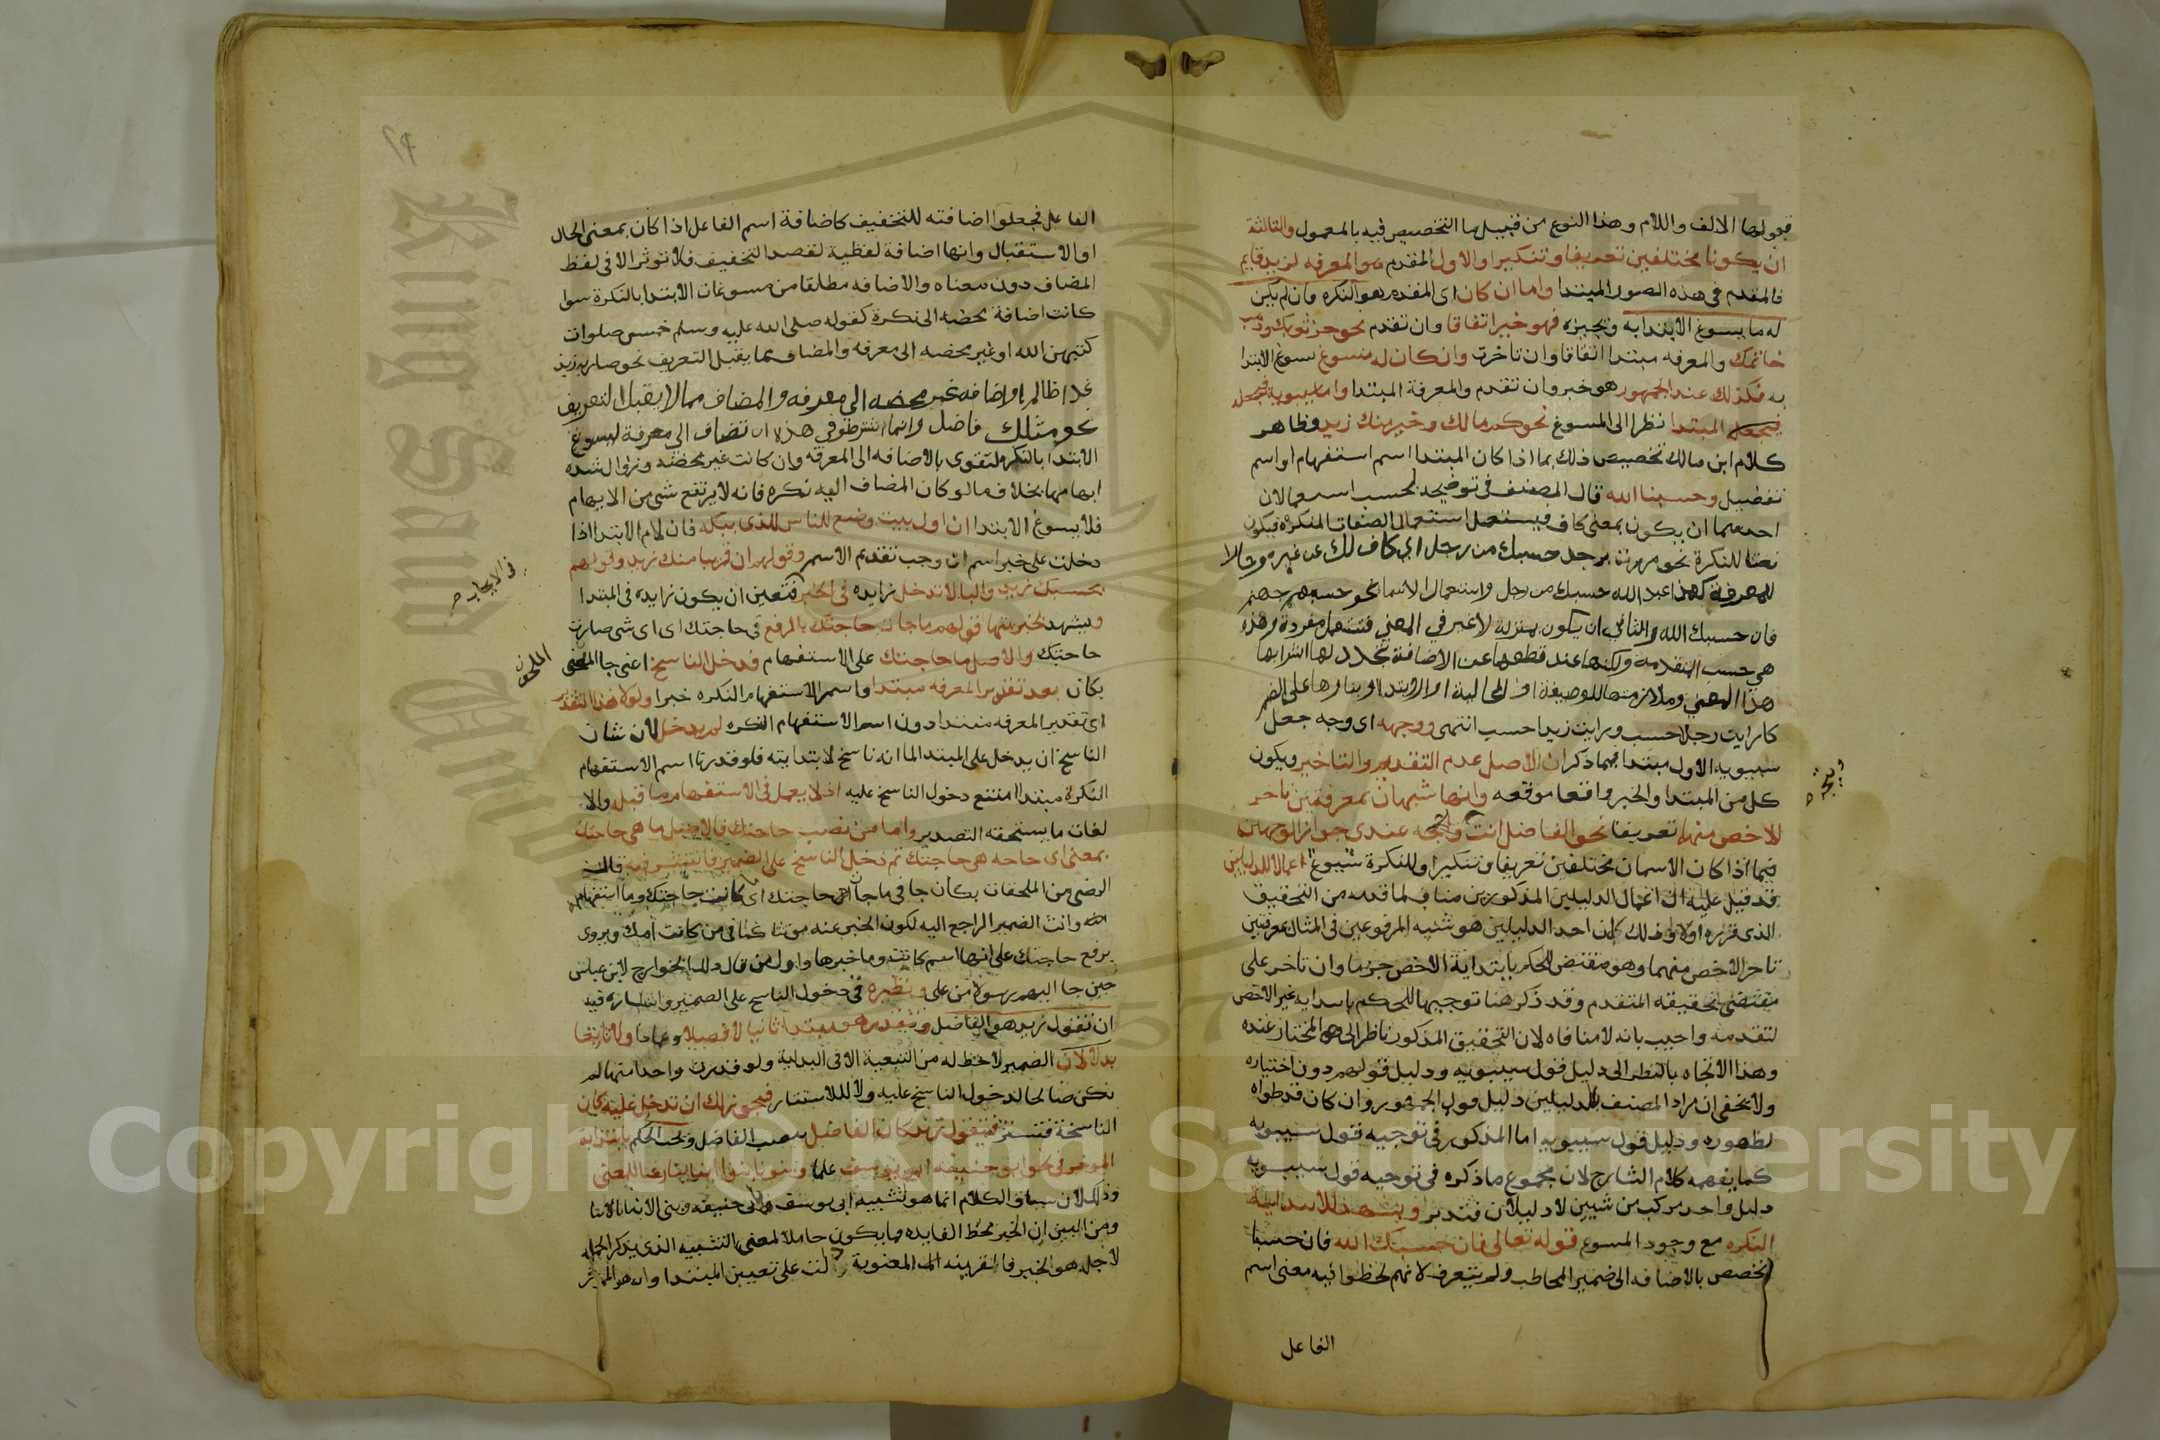 قبولها الالف واللام وهذا النوع من قبيل ما التخصيص فيه بالمعمول والثالثة
ان يكونا مختلفين تعريفا وتنكيرا والاول المقدم هو المعرفه لزيد قايم
فالمقدم في هذه الصور المبتدا واما ان كان اى المقدم هو النكره فان لم يكن
له ما يسوغ الابتدا به ويجيزه فهو خبر اتفاقا وان تقدم نحو خز ثوبك وذهب
خاتمك والمعرفه مبتدا اتفاقا وان تاخرت وان كان له مسوغ سوغ الابتدا
به فكذلك عند الجمهور هو خبر وان تقدم والمعرفة المبتدا واما سيبويه فيجعله
المبتدا نظرا الى المسوغ نحو كم مالك وخير منك زيد وظاهر
كلام ابن مالك تخصيص ذلك بما اذا كان المبتدا اسم استفهام او اسم
تفضيل وحسبنا الله قال المصنف في توضيحه لحسب استعمالان
احدهما ان يكون بمعنى كاف فيستعمل استعمال الصفات المنكره فيكون
نعتا للنكرة نحو مررت برجل حسبك من رجل اي كاف لك عن غيره وحالا
للمعرفة كهذا عبد الله حسبك من رجل واستعمال الاسما نحو حسبهم جهنم
فان حسبك الله والثاني ان يكون بمنزلة لا غير في المعني فتستعمل مفردة وهذه
هي حسب المتقدمه ولكنها عند قطعها عن الاضافة تجدد لها اشرابها
هذا المعني وملازمتها للوصفية او الحالية او الابتدا وبناوها على الضم
كرايت رجلا حسب ورايت زيدا حسب انتهى ووجهه اى وجه جعل
سيبويه الاول مبتدا فيما ذكر ان الاصل عدم التقديم والتاخير ويكون
ويتجه
كل من المبتدا والخبر واقعا موقعه وانها شبيهان بمعرفتين تاخر
الاخص منهما تعريفا نحو الفاضل انت ويتجه عندى جواز الوجهين
فيما اذا كان الاسمان مختلفين تعريفا وتنكيرا وللنكرة مسوغ اعمالا للدليلين
قد قيل عليه ان اعمال الدليلين المذكورين مناف لما قدمه من التحقيق
الذى قرره اولا وذلك لان احد الدليلين هو شبه المرفوعين في المثال بمعرفتين
تاخر الاخص منهما وهو مقتض للحكم بابتداية الاخص جزما وان تاخر على
مقتضى تحقيقه المتقدم وقد ذكر هنا توجيها للحكم بابتدايه غير الاخص
لتقدمه واجيب بانه لا منافاه لان التحقيق المذكور ناظر الى ما هو المختار عنده
وهذا الاتجاه بالنظر الى دليل قول سيبويه ودليل قولهم دون اختياره
ولا يخفى ان مراد المصنف بالدليلين دليل قول الجمهور وان كان قد طواه
لظهوره ودليل قول سيبويه اما المذكور في توجيه قول سيبويه
كما يفهمه كلام الشارح لان مجموع ما ذكره في توجيه قول سيبويه
دليل واحد مركب من شيين لا دليلان فتدبر ويشهد للابتدايية
النكره مع وجود المسوغ قوله تعالى فان حسبك الله فان حسبا
تخصص بالاضافه الى ضمير المخاطب ولم يتعرف لانهم لحظوا فيه معنى اسم
الفاعل
الفاعل فجعلوا اضافته للتخفيف كاضافة اسم الفاعل اذا كان بمعنى الحال
او الاستقبال وانها اضافة لفظية لقصد التخفيف فلا توثر الا في لفظ
المضاف دون معناه والاضافه مطلقا من مسوغات الابتدا بالنكرة سوا
كانت اضافة محضه الى نكرة كقوله صلى الله عليه وسلم خمس صلوات
كتبهن الله او غير محضه الى معرفه والمضاف مما يقبل التعريف نحو ضارب زيد
غدا ظالم او اضافه غير محضه الى معرفه والمضاف مما لا يقبل التعريف
نحو مثلك فاضل وانما يشترطو في هذه ان تضاف الى معرفة ليسوغ
الابتدا بالنكره لتقوى بالاضافه الى المعرفه وان كانت غير محضة ونزوال شده
ابهامها بخلاف ما لو كان المضاف اليه نكره فانه لا يرتفع شى من الابهام
فلا يسوغ الابتدا ان اول بيت وضع للناس للذى ببكه فان لام الابتدا اذا
دخلت على خبر اسم ان وجب تقديم الاسم وقولهم ان قريبا منك زيد وقولهم
في الايجاب صح
بحسبك زيد والبا لا تدخل زايده في الخبر فتعين ان يكون زايده في المبتدا
ويشهد لخبريتها قولهم ما جات حاجتك بالرفع في حاجتك اى اى شى صارت
حاجتك والاصل ما حاجتك على الاستفهام فدخل الناسخ اعنى جا الملحق
الملحق
بكان بعد تقدير المعرفه مبتدا واسم الاستفهام النكره خبرا ولولا هذا التقدير
اى تقدير المعرفه مبتدا دون اسم الاستفهام النكره لم يدخل لان شان
الناسخ ان يدخل على المبتدا لما انه ناسخ لابتدايته فلو قدرنا اسم الاستفهام
النكرة مبتدا امتنع دخول الناسخ عليه اذ لا يعمل في الاستفهام ما قبله والا
لفات ما يستحقه التصدير واما من نصب حاجتك فالاصل ما هي حاجتك
بمعنى اى حاجه هي حاجتك ثم دخل الناسخ على الضمير فاستتر فيه قال
الرضى من الملحقات بكان جا في ما جات حاجتك اى ما كانت حاجتك وما استفهاميه
وانث الضمير الراجع اليه لكون الخبر عنه مونثا كما في من كانت امك ويروى
برفع حاجتك على انها اسم كانت وما خبرها واول من قال ذلك الخوارج لابن عباس
حين جا اليهم رسولا من على ونظيره في دخول الناسخ على الضمير واستتاره فيه
ان تقول زيد هو الفاضل وتقدر هو مبتدا ثانيا لا فصلا وعمادا ولا تابعا
بدلا لان الضمير لاحظ له من التبعية الا في البداية ولو قدرت واحدا منهما لم
يكن صالحا لدخول الناسخ عليه ولا للاستتار فيجوز لك ان تدخل عليه كان
الناسخة فتستتر فتقول زيد كان الفاضل بنصب الفاضل ويجب الحكم بابتدايه
الموخر في نحو ابو حنيفه ابو يوسف علما وبنونا بنو ابناينا رعيا للمعنى
وذلك لان سياق الكلام انما هو لتشبيه ابى يوسف بابى حنيفه وبنى الابنا بالابنا
ومن البين ان الخبر محط الفايده فما يكون حاملا لمعنى التشبيه الذى يذكر الجمله
لاجله هو الخبر فالقرينه المعنوية دلت على تعيين المبتدا وان هو الموخر
Copyright © King Saud University
King Saud University
1957